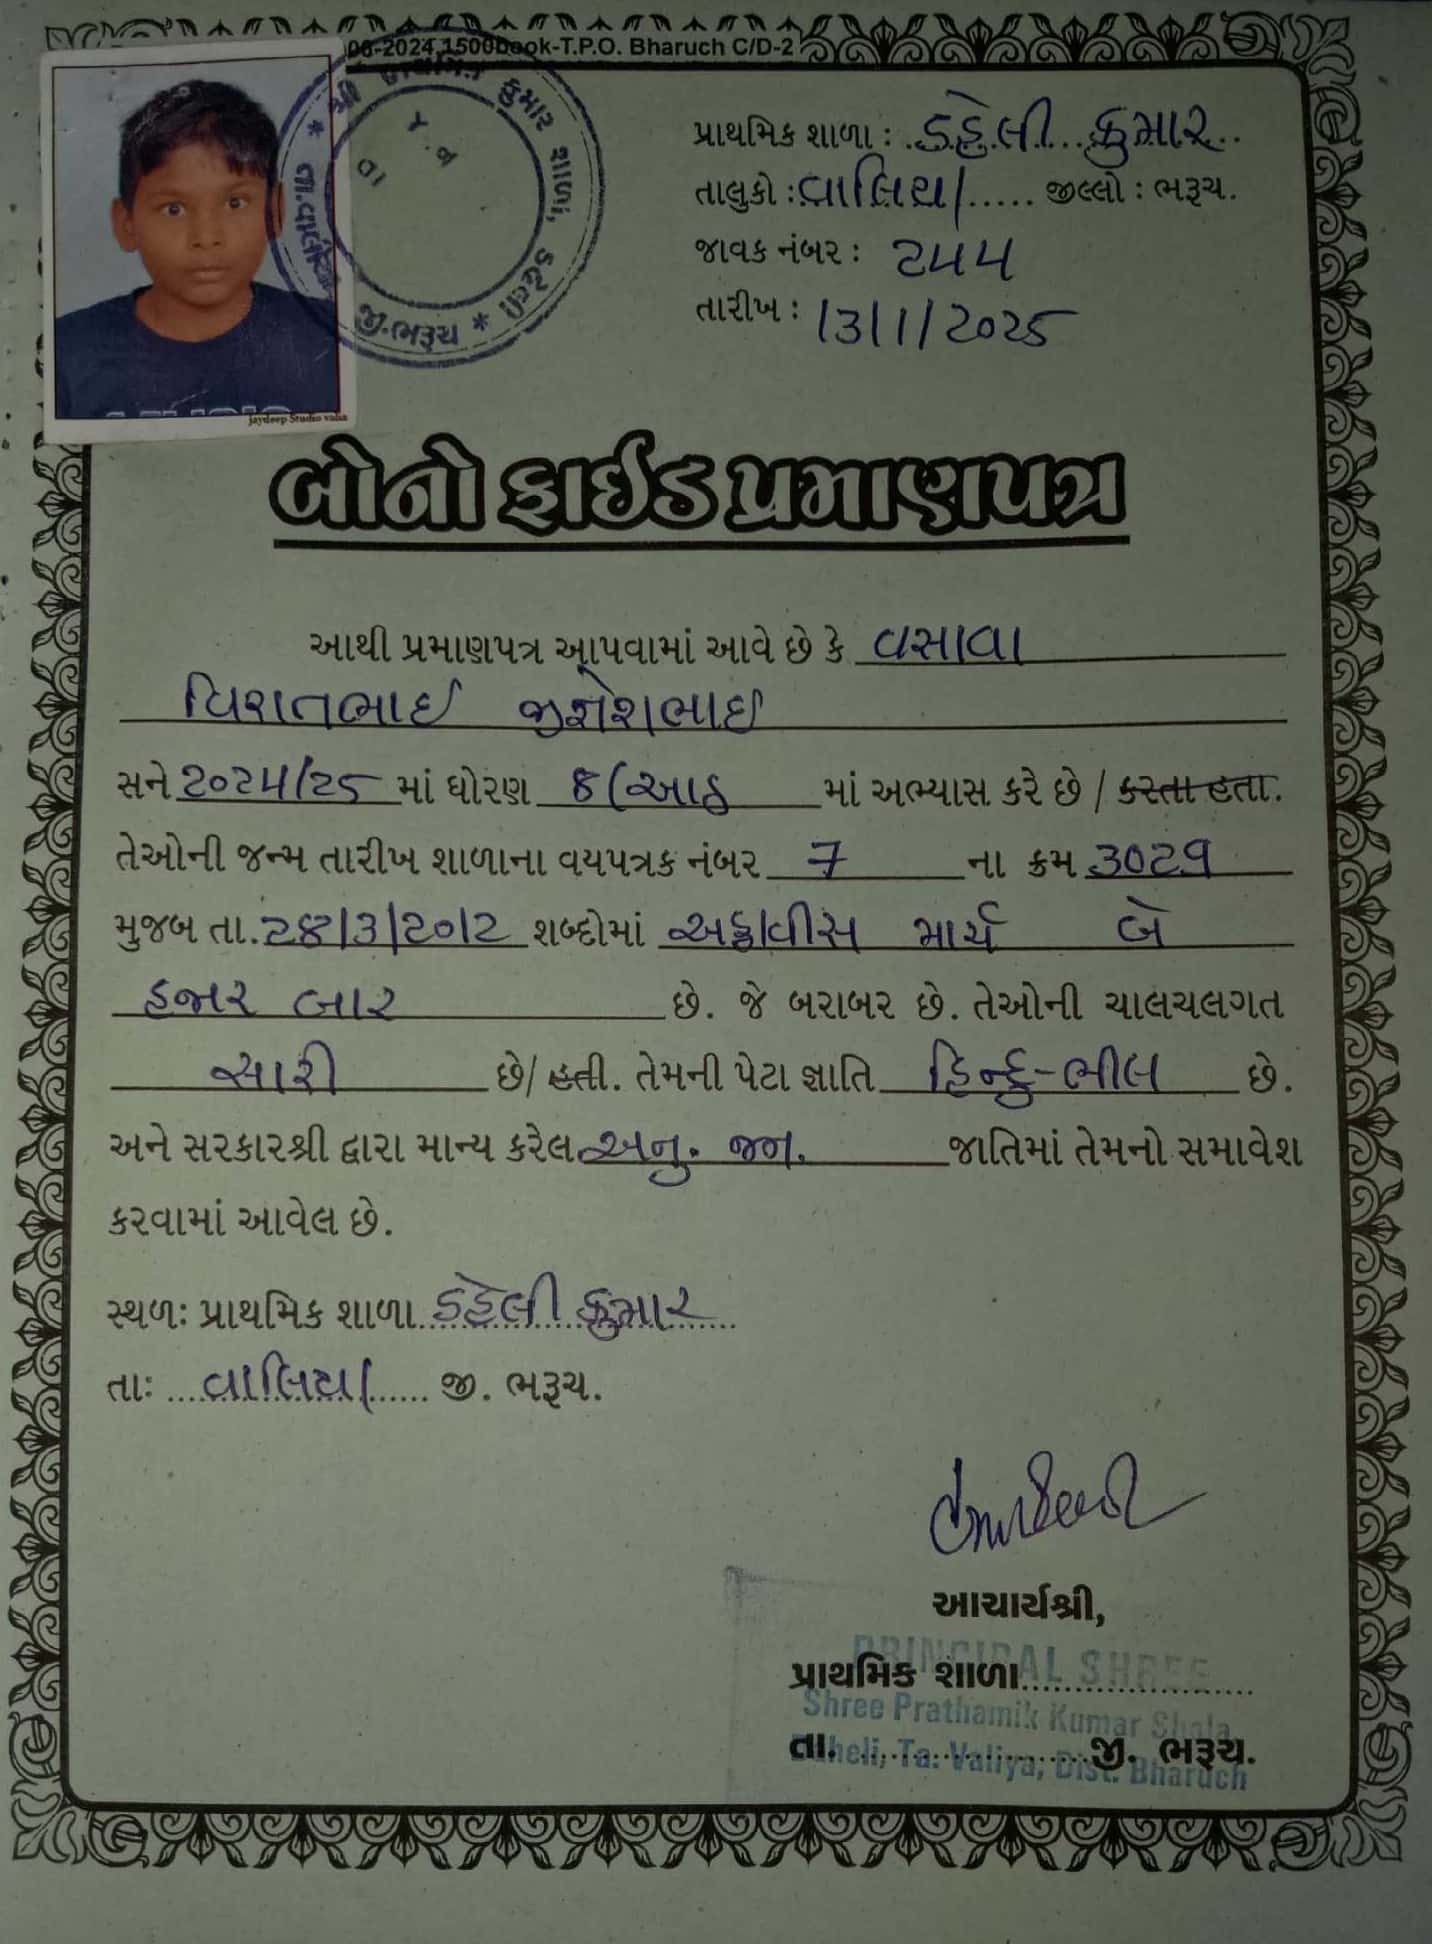 06-2024,1500book-T.P.O. Bharuch C/D-2
કુમાર શાળા, ડહેલી * જી.ભરૂચ * તા.વાલીયા
jaydeep Studio valia
પ્રાથમિક શાળા : ડહેલી કુમાર
તાલુકો : વાલિયા જીલ્લો : ભરૂચ.
જાવક નંબર : ૨૫૫
તારીખ : 13/1/૨૦૨૫
બોનો ફાઈડ પ્રમાણપત્ર
આથી પ્રમાણપત્ર આપવામાં આવે છે કે વસાવા
વિરાતભાઇ જીજ્ઞેશભાઇ
સને ૨૦૨૪/૨૫ માં ધોરણ 8 (આઠ માં અભ્યાસ કરે છે / કરતા હતા.
તેઓની જન્મ તારીખ શાળાના વયપત્રક નંબર 7 ના ક્રમ ૩૦૨૧
મુજબ તા. ૨૮/૩/૨૦૧૨ શબ્દોમાં અઠ્ઠાવીસ માર્ચ બે
હજાર બાર છે. જે બરાબર છે. તેઓની ચાલચલગત
સારી છે/ હતી. તેમની પેટા જ્ઞાતિ હિન્દુ-ભીલ છે.
અને સરકારશ્રી દ્વારા માન્ય કરેલ અનુ. જન. જાતિમાં તેમનો સમાવેશ
કરવામાં આવેલ છે.
સ્થળ: પ્રાથમિક શાળા ડહેલી કુમાર
તા: વાલિયા જી. ભરૂચ.
આચાર્યશ્રી,
PRINCIPAL SHREE
પ્રાથમિક શાળા....................
Shree Prathamik Kumar Shala
તા. ....................જી. ભરૂચ.
Daheli, Ta: Valiya, Dist. Bharuch